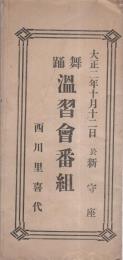 大正二年十月十二日 於新守座
舞踊
溫習會番組
西川里喜代